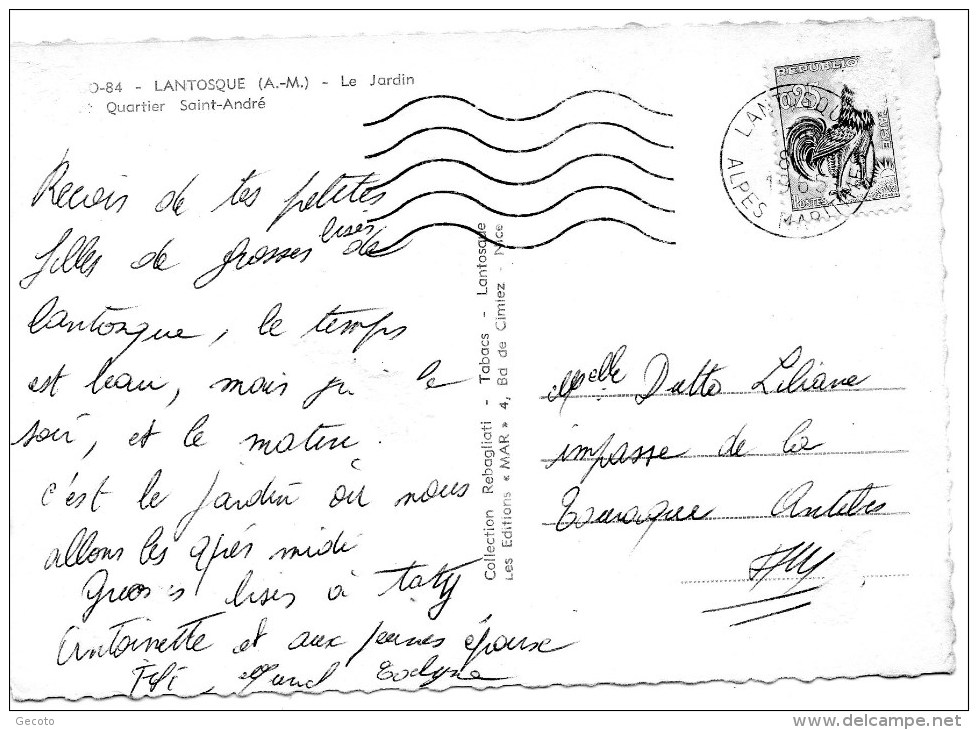 0-84 - LANTOSQUE (A.-M.) - Le Jardin
Quartier Saint-André
REPUBLIQ
LANTOSQUE
ALPES MARITIMES
Recois de tes petites
filles de grosses bises de
Lantosque, le temps
est beau, mais le
soir, et le matin.
c'est le jardin où nous
allons les après midi
Gros bises à taty
Antoinette et aux jeunes époux
Fifi,
Collection Rebagliati - Tabacs - Lantosque
Les Editions « MAR » 4, Bd de Cimiez - Nice
Melle Dutto Liliane
impasse de la
Tourraque Antibes
AM
Gecoto
delcampe.net